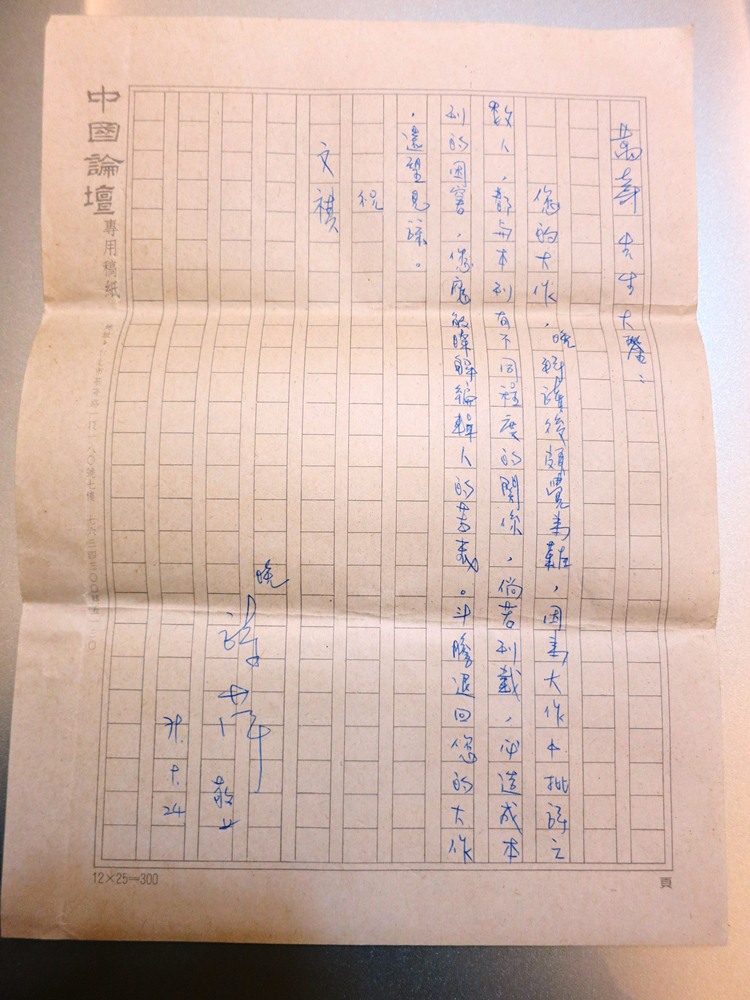 先生大鑒：
您的大作，晚拜讀後頗覺為難，因為大作中批評之
數人，都與本刊有不同程度的關係，倘若刊載，必造成本
刊的困窘，您應能瞭解編輯人的苦衷。斗膽退回您的大作
，還望見諒。
祝
文祺
晚
敬上
24
中國論壇專用稿紙
12×25=300
頁